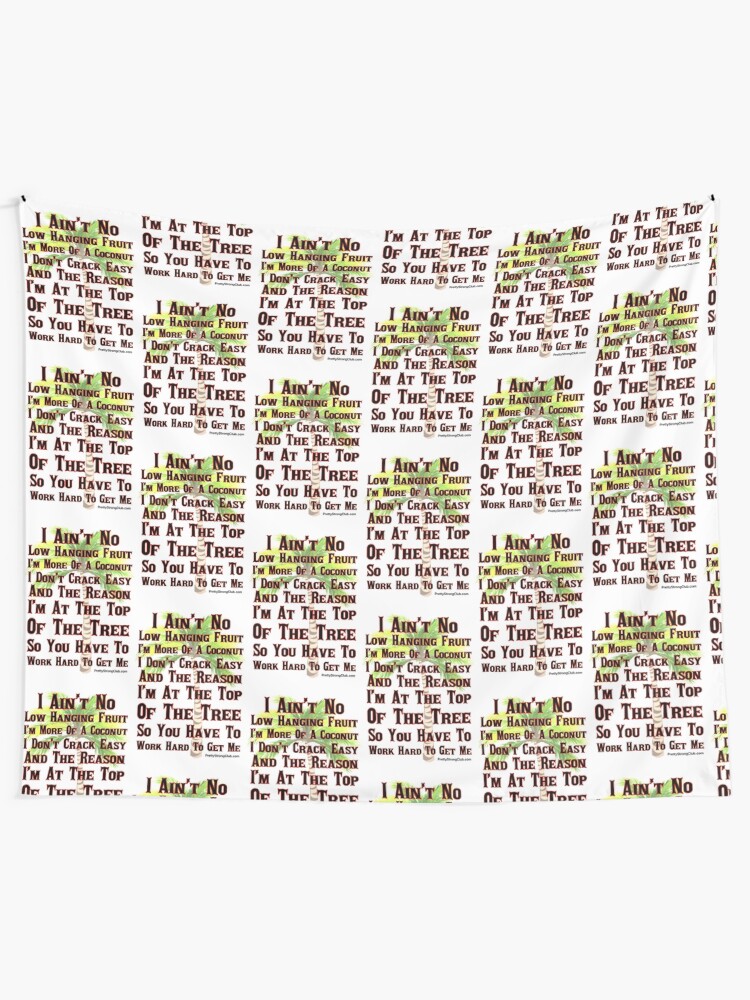 I Ain't No
Low Hanging Fruit
I'm More Of A Coconut
I Don't Crack Easy
And The Reason
I'm At The Top
Of The Tree
So You Have To
Work Hard To Get Me
PrettyStrongClub.com
I Ain't No
Low Hanging Fruit
I'm More Of A Coconut
I Don't Crack Easy
And The Reason
I'm At The Top
Of The Tree
So You Have To
Work Hard To Get Me
PrettyStrongClub.com
I Ain't No
Low Hanging Fruit
I'm More Of A Coconut
I Don't Crack Easy
And The Reason
I'm At The Top
Of The Tree
So You Have To
Work Hard To Get Me
PrettyStrongClub.com
I Ain't No
Low Hanging Fruit
I'm More Of A Coconut
I Don't Crack Easy
And The Reason
I'm At The Top
Of The Tree
I'm At The Top
Of The Tree
So You Have To
Work Hard To Get Me
PrettyStrongClub.com
I Ain't No
Low Hanging Fruit
I'm More Of A Coconut
I Don't Crack Easy
And The Reason
I'm At The Top
Of The Tree
So You Have To
Work Hard To Get Me
PrettyStrongClub.com
I Ain't No
Low Hanging Fruit
I'm More Of A Coconut
I Don't Crack Easy
And The Reason
I'm At The Top
Of The Tree
So You Have To
Work Hard To Get Me
PrettyStrongClub.com
I Ain't No
Low Hanging Fruit
I'm More Of A Coconut
I Don't Crack Easy
And The Reason
I'm At The Top
Of The Tree
So You Have To
Work Hard To Get Me
PrettyStrongClub.com
I Ain't No
I Ain't No
Low Hanging Fruit
I'm More Of A Coconut
I Don't Crack Easy
And The Reason
I'm At The Top
Of The Tree
So You Have To
Work Hard To Get Me
PrettyStrongClub.com
I Ain't No
Low Hanging Fruit
I'm More Of A Coconut
I Don't Crack Easy
And The Reason
I'm At The Top
Of The Tree
So You Have To
Work Hard To Get Me
PrettyStrongClub.com
I Ain't No
Low Hanging Fruit
I'm More Of A Coconut
I Don't Crack Easy
And The Reason
I'm At The Top
Of The Tree
So You Have To
Work Hard To Get Me
PrettyStrongClub.com
I Ain't No
Low Hanging Fruit
I'm More Of A Coconut
I Don't Crack Easy
And The Reason
I'm At The Top
Of The Tree
I'm At The Top
Of The Tree
So You Have To
Work Hard To Get Me
PrettyStrongClub.com
I Ain't No
Low Hanging Fruit
I'm More Of A Coconut
I Don't Crack Easy
And The Reason
I'm At The Top
Of The Tree
So You Have To
Work Hard To Get Me
PrettyStrongClub.com
I Ain't No
Low Hanging Fruit
I'm More Of A Coconut
I Don't Crack Easy
And The Reason
I'm At The Top
Of The Tree
So You Have To
Work Hard To Get Me
PrettyStrongClub.com
I Ain't No
Low Hanging Fruit
I'm More Of A Coconut
I Don't Crack Easy
And The Reason
I'm At The Top
Of The Tree
So You Have To
Work Hard To Get Me
PrettyStrongClub.com
I Ain't No
I Ain't No
Low Hanging Fruit
I'm More Of A Coconut
I Don't Crack Easy
And The Reason
I'm At The Top
Of The Tree
So You Have To
Work Hard To Get Me
PrettyStrongClub.com
I Ain't No
Low Hanging Fruit
I'm More Of A Coconut
I Don't Crack Easy
And The Reason
I'm At The Top
Of The Tree
So You Have To
Work Hard To Get Me
PrettyStrongClub.com
I Ain't No
Low Hanging Fruit
I'm More Of A Coconut
I Don't Crack Easy
And The Reason
I'm At The Top
Of The Tree
So You Have To
Work Hard To Get Me
PrettyStrongClub.com
I Ain't No
Low Hanging Fruit
I'm More Of A Coconut
I Don't Crack Easy
And The Reason
I'm At The Top
Of The Tree
I'm At The Top
Of The Tree
So You Have To
Work Hard To Get Me
PrettyStrongClub.com
I Ain't No
Low Hanging Fruit
I'm More Of A Coconut
I Don't Crack Easy
And The Reason
I'm At The Top
Of The Tree
So You Have To
Work Hard To Get Me
PrettyStrongClub.com
I Ain't No
Low Hanging Fruit
I'm More Of A Coconut
I Don't Crack Easy
And The Reason
I'm At The Top
Of The Tree
So You Have To
Work Hard To Get Me
PrettyStrongClub.com
I Ain't No
Low Hanging Fruit
I'm More Of A Coconut
I Don't Crack Easy
And The Reason
I'm At The Top
Of The Tree
So You Have To
Work Hard To Get Me
PrettyStrongClub.com
I Ain't No